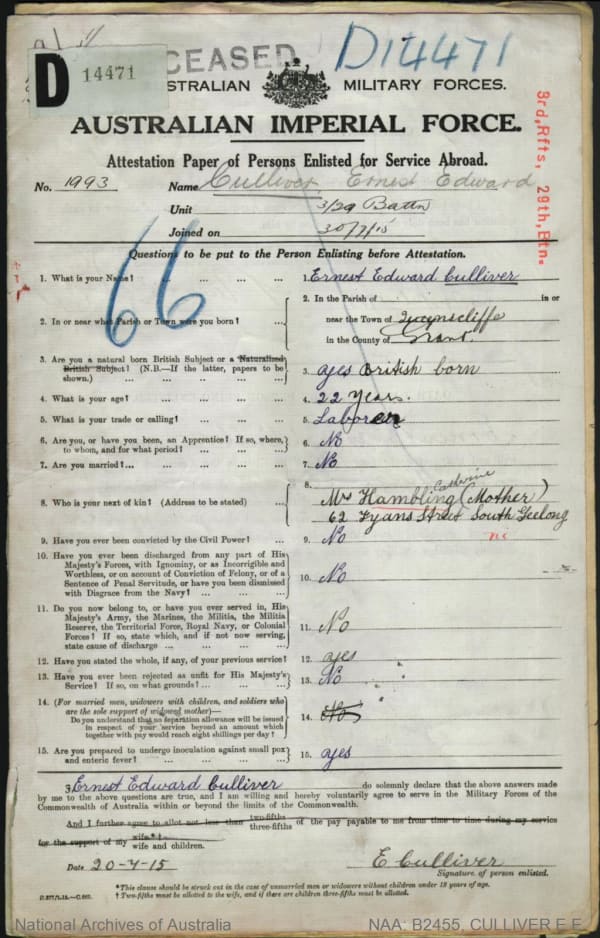 D14471
D 14471
DECEASED
AUSTRALIAN MILITARY FORCES.
AUSTRALIAN IMPERIAL FORCE.
Attestation Paper of Persons Enlisted for Service Abroad.
3rd, Rfts, 29th, Btn.
No. 1993 Name Culliver, Ernest Edward
Unit 3/29 Battn
Joined on 30/7/15
66
Questions to be put to the Person Enlisting before Attestation.
1. What is your Name? ... ... ... ... 1. Ernest Edward Culliver
2. In or near what Parish or Town were you born? ... 2. In the Parish of in or
near the Town of Queenscliffe
in the County of Grant.
3. Are you a natural born British Subject or a Naturalized
British Subject? (N.B.—If the latter, papers to be
shown.) ... ... ... ... 3. yes British born
4. What is your age? ... ... ... ... 4. 22 years.
5. What is your trade or calling? ... ... ... 5. Laborer
6. Are you, or have you been, an Apprentice? If so, where,
to whom, and for what period? ... ... ... 6. No
7. Are you married? ... ... ... ... 7. No
8. Who is your next of kin? (Address to be stated) ... 8.
Catherine
Mrs Hambling (Mother)
62 Fyans Street South Geelong
9. Have you ever been convicted by the Civil Power? ... 9. No
10. Have you ever been discharged from any part of His
Majesty's Forces, with Ignominy, or as Incorrigible and
Worthless, or on account of Conviction of Felony, or of a
Sentence of Penal Servitude, or have you been dismissed
with Disgrace from the Navy? ... ... ... 10. No
11. Do you now belong to, or have you ever served in, His
Majesty's Army, the Marines, the Militia, the Militia
Reserve, the Territorial Force, Royal Navy, or Colonial
Forces? If so, state which, and if not now serving,
state cause of discharge ... ... ... 11. No
12. Have you stated the whole, if any, of your previous service? 12. yes
13. Have you ever been rejected as unfit for His Majesty's
Service? If so, on what grounds? ... ... ... 13. No
14. (For married men, widowers with children, and soldiers who
are the sole support of widowed mother)—
Do you understand that no separation allowance will be issued
in respect of your service beyond an amount which
together with pay would reach eight shillings per day? 14. No
15. Are you prepared to undergo inoculation against small pox
and enteric fever? ... ... ... ... 15. yes
I, Ernest Edward Culliver do solemnly declare that the above answers made
by me to the above questions are true, and I am willing and hereby voluntarily agree to serve in the Military Forces of the
Commonwealth of Australia within or beyond the limits of the Commonwealth.
And I further agree to allot not less than two-fifths
three-fifths of the pay payable to me from time to time during my service
for the support of my wife*†
wife and children.
Date 20-7-15 E Culliver
Signature of person enlisted.
*This clause should be struck out in the case of unmarried men or widowers without children under 18 years of age.
† Two-fifths must be allotted to the wife, and if there are children three-fifths must be allotted.
National Archives of Australia NAA: B2455, CULLIVER E E